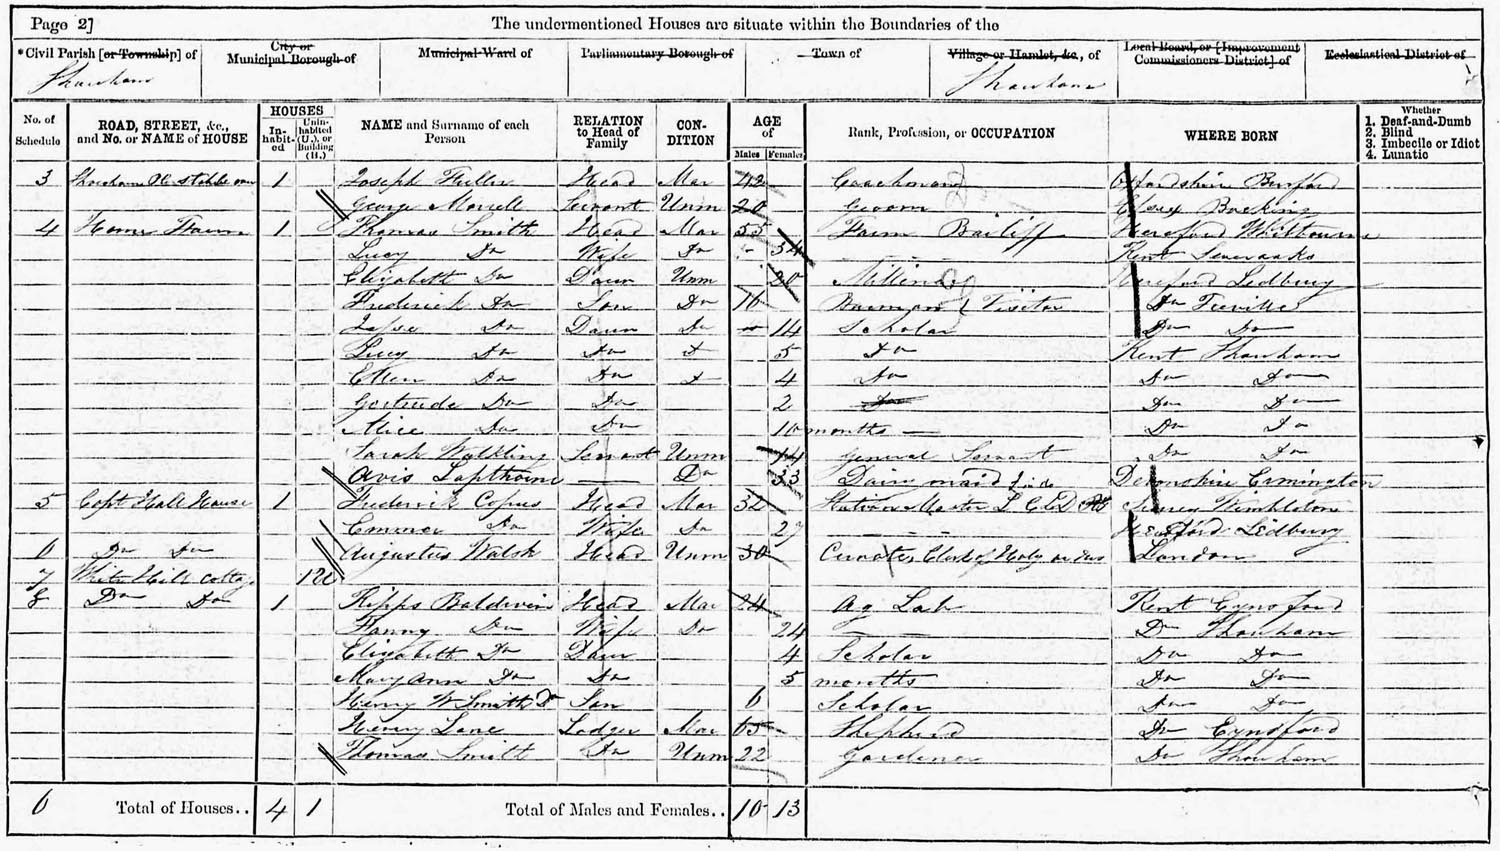 Page 2] The undermentioned Houses are situate within the Boundaries of the
*Civil Parish [or Township] of City or Municipal Borough of Municipal Ward of Parliamentary Borough of Town of Village or Hamlet, &c., of Local Board, or [Improvement Commissioners District] of Ecclesiastical District of
Shoreham Shoreham
No. of Schedule ROAD, STREET, &c., and No. or NAME of HOUSE HOUSES Inhabited Uninhabited (U.), or Building (B.) NAME and Surname of each Person RELATION to Head of Family CONDITION AGE of Males Females Rank, Profession, or OCCUPATION WHERE BORN Whether 1. Deaf-and-Dumb 2. Blind 3. Imbecile or Idiot 4. Lunatic
3 Shoreham 1 Joseph Fuller Head Mar 42 Coachman Oxfordshire Burford
George Servant Unm 20 Groom Bocking
4 Home Farm 1 Thomas Smith Head Mar 55 Farm Bailiff Hereford Whitbourne
Lucy Do Wife Do 34 Kent Sevenoaks
Elizabeth Do Daur Unm 20 Milliner Hereford Ledbury
Frederick Do Son Do 16 Visitor Do
Do Daur Do 14 Scholar Do Do
Lucy Do Do 5 Do Kent Shoreham
Ellen Do Do 4 Do Do Do
Gertrude Do Do 2 Do Do Do
Alice Do Do 10 months Do Do
Sarah Servant Unm 14 General Servant Do Do
Avis Lapthorne Do 33 Dairy maid Devonshire Ermington
5 Copt Hall House 1 Frederick Copus Head Mar 32 Station Master L C & D Surrey Wimbledon
Emma Do Wife Do 27 Hereford Ledbury
6 Do Do Augustus Walsh Head Unm 30 Curate London
7 White Hill Cottage 1
8 Do Do 1 Baldwin Head Mar 24 Ag Lab Kent Eynsford
Fanny Do Wife Do 24 Do Shoreham
Elizabeth Do Daur 4 Scholar Do Do
Mary Ann Do Do 5 months Do Do
Henry W Smith Do Son 6 Scholar Do Do
Henry Lane Lodger Mar 65 Shepherd Do Eynsford
Thomas Smith Do Unm 22 Gardener Do Shoreham
6 Total of Houses.. 4 1 Total of Males and Females.. 10 13